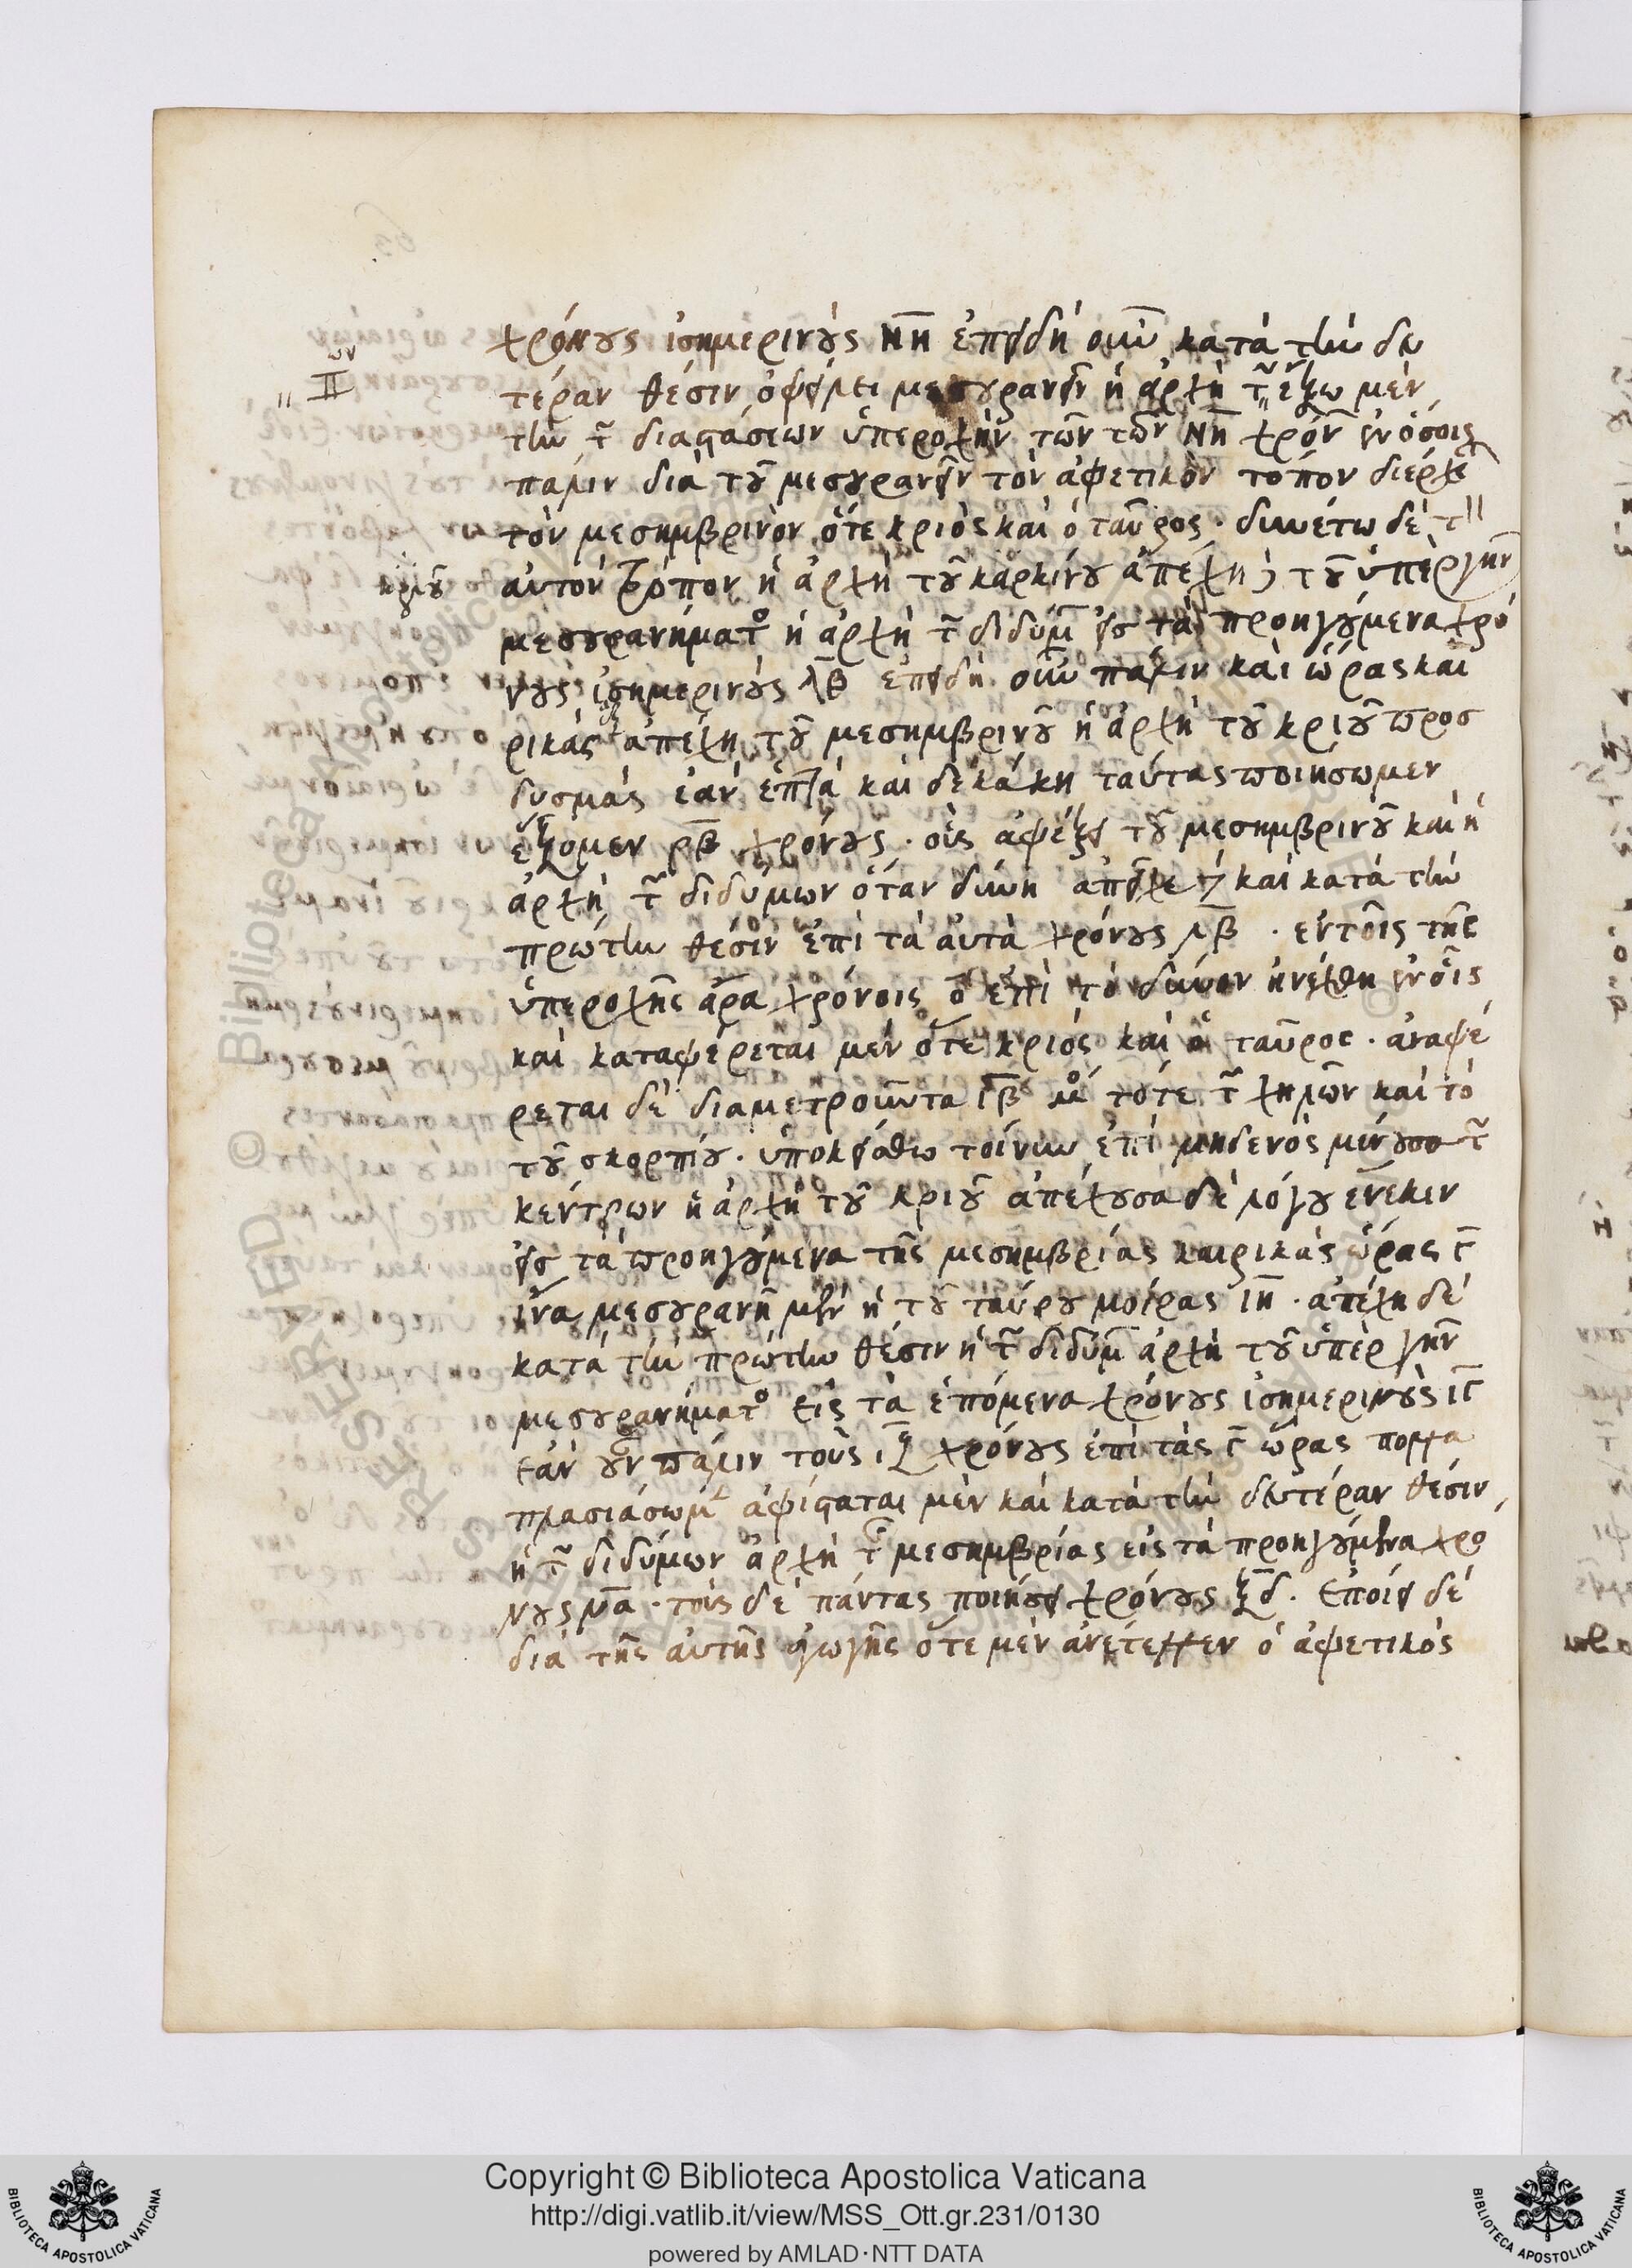 χρόνους ἰσημερινοὺς νη ἐπειδὴ οὖν κατὰ τὴν δευ
τέραν θέσιν ὀφείλει μεσουρανεῖν ἡ ἀρχὴ τ ἕξω μὲν
τὴν τ διαστάσεων ὑπεροχὴν τῶν τῶν νη χρόν ἐν ὅσοις
πάλιν διὰ τοῦ μεσουρανεῖν τὸν ἀφετικὸν τόπον διέρχε
τὸν μεσημβρινὸν ὅτε κριὸς καὶ ὁ ταῦρος · δυνέτω δὲ τ
αὐτὸν τρόπον ἡ ἀρχὴ τοῦ καρκίνου ἀπέχη τοῦ ὑπὲρ γῆν
κριοῦ
μεσουρανήματο ἡ ἀρχὴ τ διδύμ εἰς τὰ προηγούμενα χρό
νους ἰσημερινοὺς λβ ἐπειδὴ οὖν πάλιν καὶ ὥρας και
ρικὰς ἀπέχη τοῦ μεσημβρινοῦ ἡ ἀρχὴ τοῦ κριοῦ προσ
δυσμὰς ἐὰν ἑπτὰ καὶ δεκάκη ταύτας ποιήσωμεν
ἕξομεν ρβ χρόνους · οὓς ἀφέξει τοῦ μεσημβρινοῦ καὶ ἡ
ἀρχὴ τ διδύμων ὅταν δύνη καὶ κατὰ τὴν
πρώτην θέσιν ἐπὶ τὰ αὐτὰ χρόνους λβ · ἐν τοῖς τῆς
ὑπεροχῆς ἄρα χρόνοις ο ἐπὶ τὸ δύνον ἠνέχθη ἐν οἷς
καὶ καταφέρεται μὲν ὅτε κριὸς καὶ ὁ ταῦρος · ἀναφέ
ρεται δὲ διαμετροῦντα τότε τ χηλῶν καὶ τὸ
τοῦ σκορπίου · ὑποκείσθω τοίνυν ἐπὶ μηδενὸς μὲν οὖσα τ
κέντρων ἡ ἀρχὴ τοῦ κριοῦ ἀπέχουσα δὲ λόγου ἕνεκεν
εἰς τὰ προηγούμενα τῆς μεσημβρίας καιρικὰς ὥρας γ
ἵνα μεσουρανῆ μὲν ἡ τοῦ ταύρου μοίρας ιη · ἀπέχη δὲ
κατὰ τὴν πρώτην θέσιν ἡ τ διδύμ ἀρχὴ τοῦ ὑπὲρ γῆν
μεσουρανήματο εἰς τὰ ἑπόμενα χρόνους ἰσημερινοὺς ιγ
ἐὰν οὖν πάλιν τοὺς ιζ χρόνους ἐπὶ τὰς γ ὥρας πολλα
πλασιάσωμ ἀφίσταται μὲν καὶ κατὰ τὴν δευτέραν θέσιν
ἡ τ διδύμων ἀρχὴ τ μεσημβρίας εἰς τὰ προηγούμενα χρό
νους να · τοὺς δὲ πάντας ποιήσει χρόνους ξδ · ἐποίει δὲ
διὰ τῆς αὐτῆς ἀγωγῆς ὅτε μὲν ἀνέτελλεν ὁ ἀφετικὸς
Copyright © Biblioteca Apostolica Vaticana
http://digi.vatlib.it/view/MSS_Ott.gr.231/0130
powered by AMLAD·NTT DATA